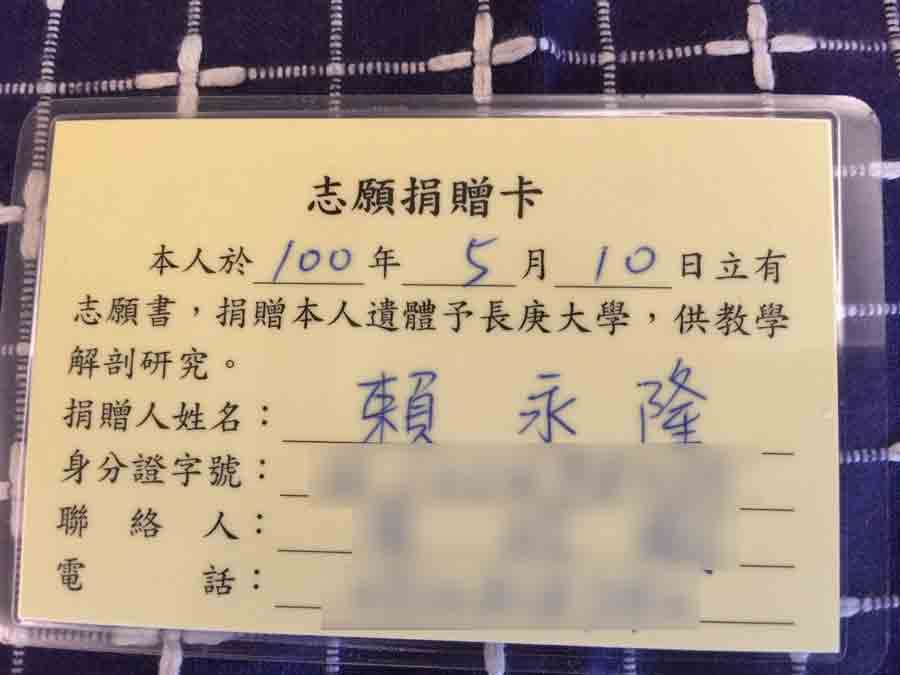 志願捐贈卡
本人於 100 年 5 月 10 日立有
志願書，捐贈本人遺體予長庚大學，供教學
解剖研究。
捐贈人姓名：賴永隆
身分證字號：
聯絡人：
電話：